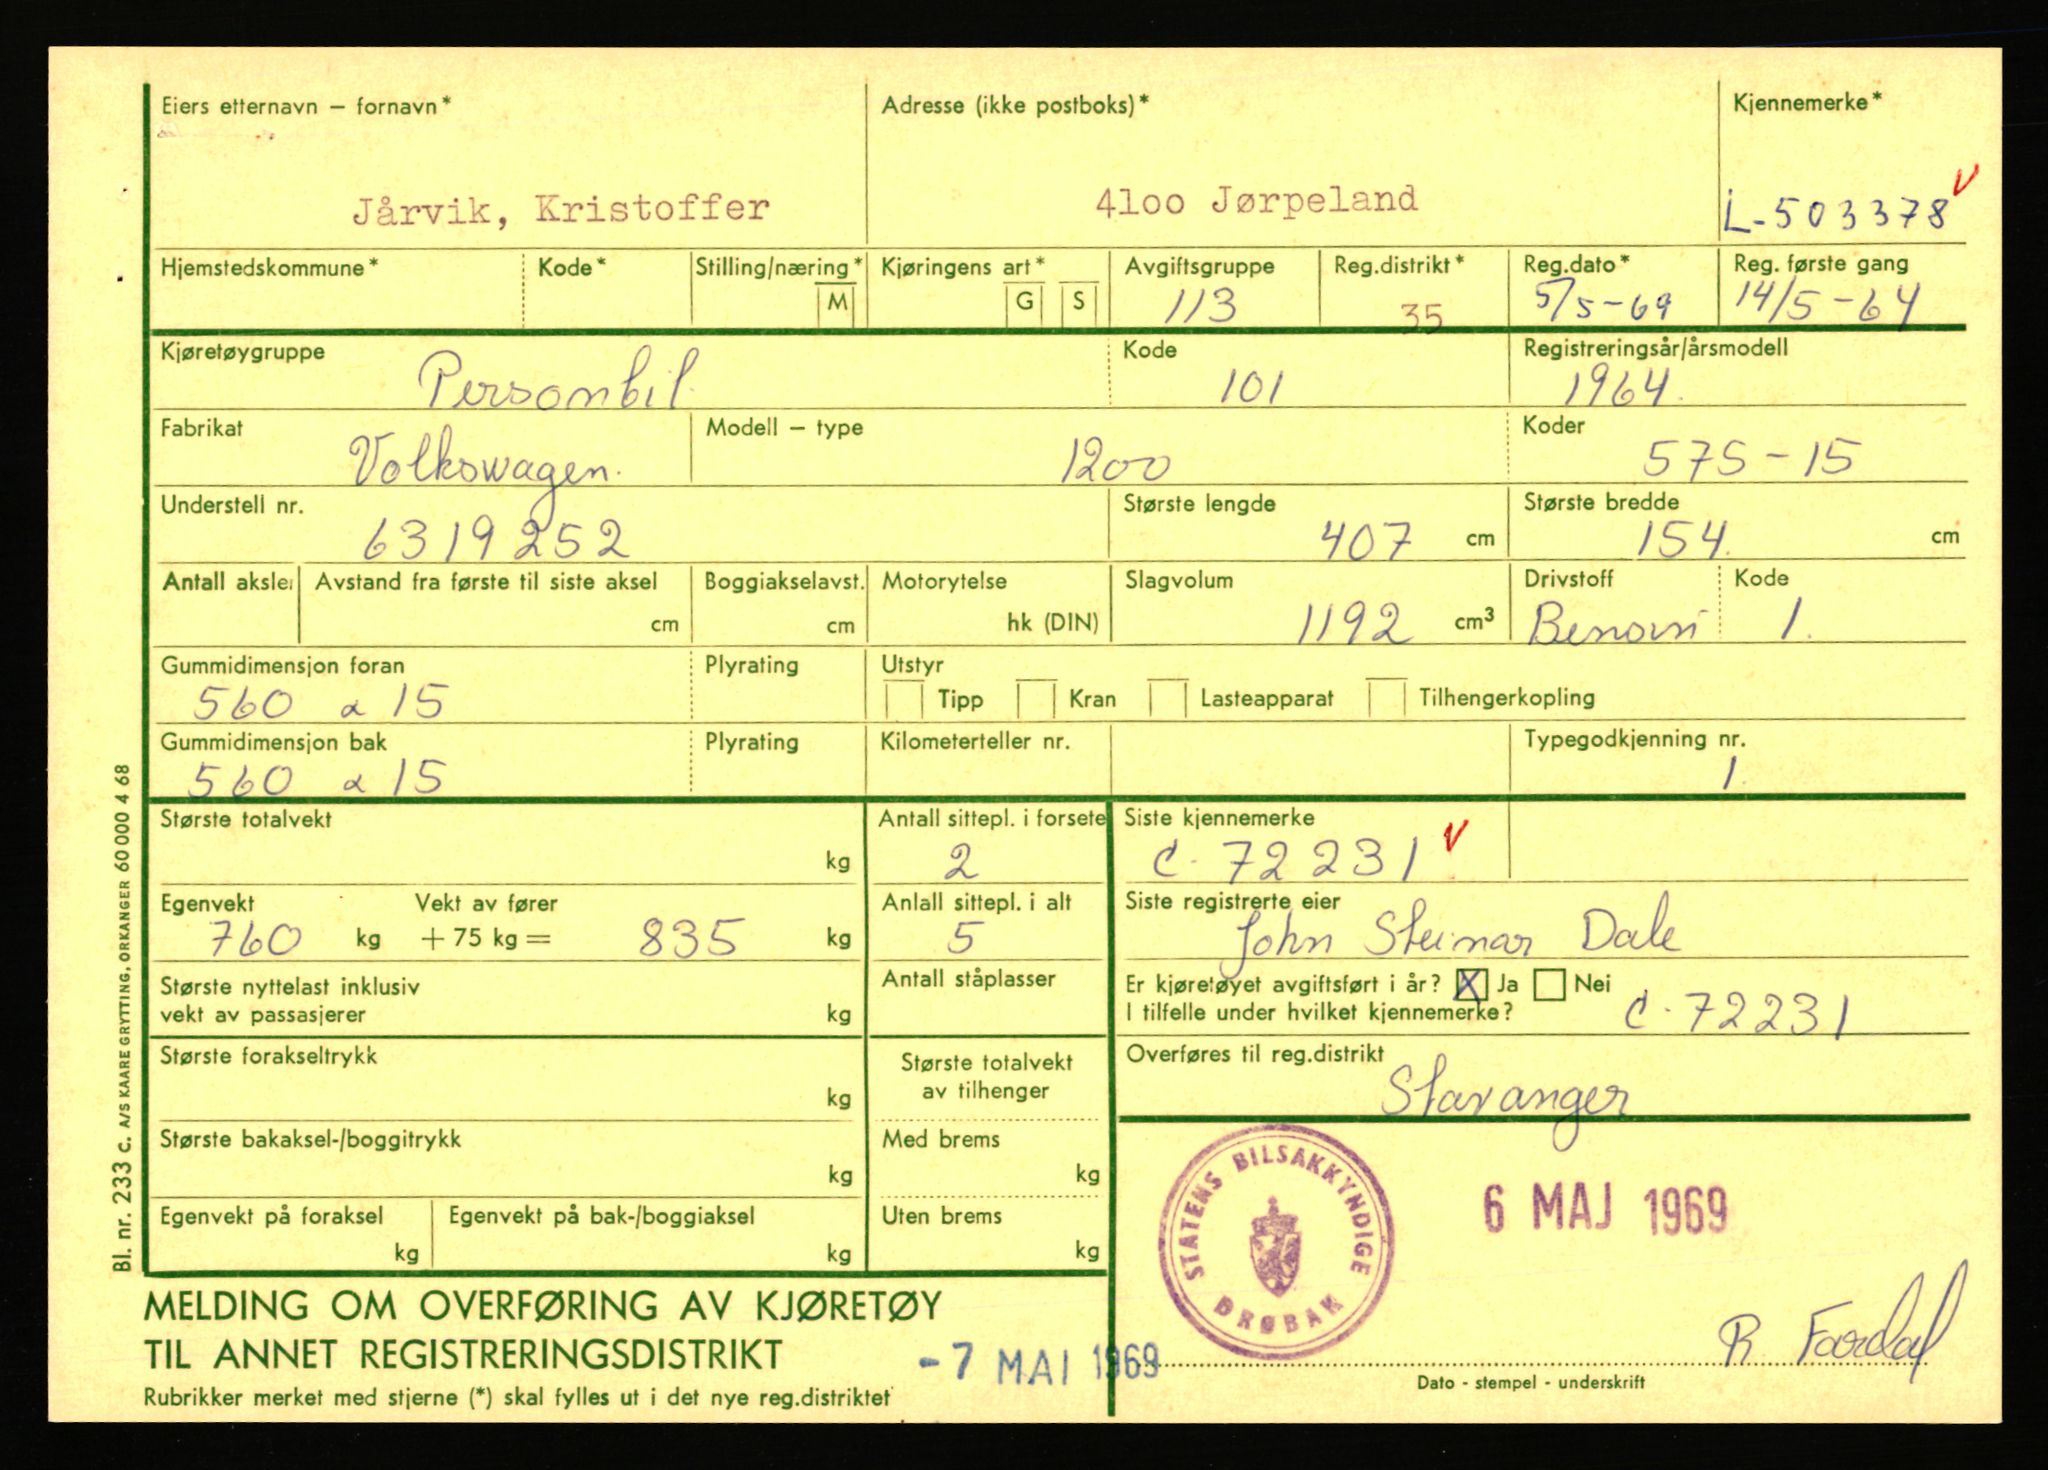 Eiers etternavn – fornavn* Adresse (ikke postboks)* Kjennemerke*
Jårvik, Kristoffer 4loo Jørpeland L-503378 V
Hjemstedskommune* Kode* Stilling/næring* Kjøringens art* Avgiftsgruppe Reg.distrikt* Reg.dato* Reg. første gang
M G S 113 35 5/5-69 14/5-64
Kjøretøygruppe Kode Registreringsår/årsmodell
Personbil 101 1964.
Fabrikat Modell – type Koder
Volkswagen. 1200 575-15
Understell nr. Største lengde Største bredde
6319252 407 cm 154. cm
Antall aksler Avstand fra første til siste aksel Boggiakselavst. Motorytelse Slagvolum Drivstoff Kode
cm cm hk (DIN) 1192 cm³ Bensin 1.
Gummidimensjon foran Plyrating Utstyr
560 x 15 Tipp Kran Lasteapparat Tilhengerkopling
Gummidimensjon bak Plyrating Kilometerteller nr. Typegodkjenning nr.
560 x 15 1.
Største totalvekt Antall sittepl. i forsete Siste kjennemerke
kg 2 C-72231 V
Egenvekt Vekt av fører Anlall sittepl. i alt Siste registrerte eier
760 kg + 75 kg = 835 kg 5 John Steinar Dale
Største nyttelast inklusiv Antall ståplasser Er kjøretøyet avgiftsført i år? X Ja Nei
vekt av passasjerer kg I tilfelle under hvilket kjennemerke? C-72231
Største forakseltrykk Største totalvekt Overføres til reg.distrikt
kg av tilhenger Stavanger
Største bakaksel-/boggitrykk Med brems
kg kg
STATENS BILSAKKYNDIGE
DRØBAK
6 MAJ 1969
Egenvekt på foraksel Egenvekt på bak-/boggiaksel Uten brems
kg kg kg
MELDING OM OVERFØRING AV KJØRETØY
TIL ANNET REGISTRERINGSDISTRIKT -7 MAI 1969 R Fardal
Dato - stempel - underskrift
Rubrikker merket med stjerne (*) skal fylles ut i det nye reg.distriktet
Bl. nr. 233 C. A/S KAARE GRYTTING, ORKANGER 60 000 4 68